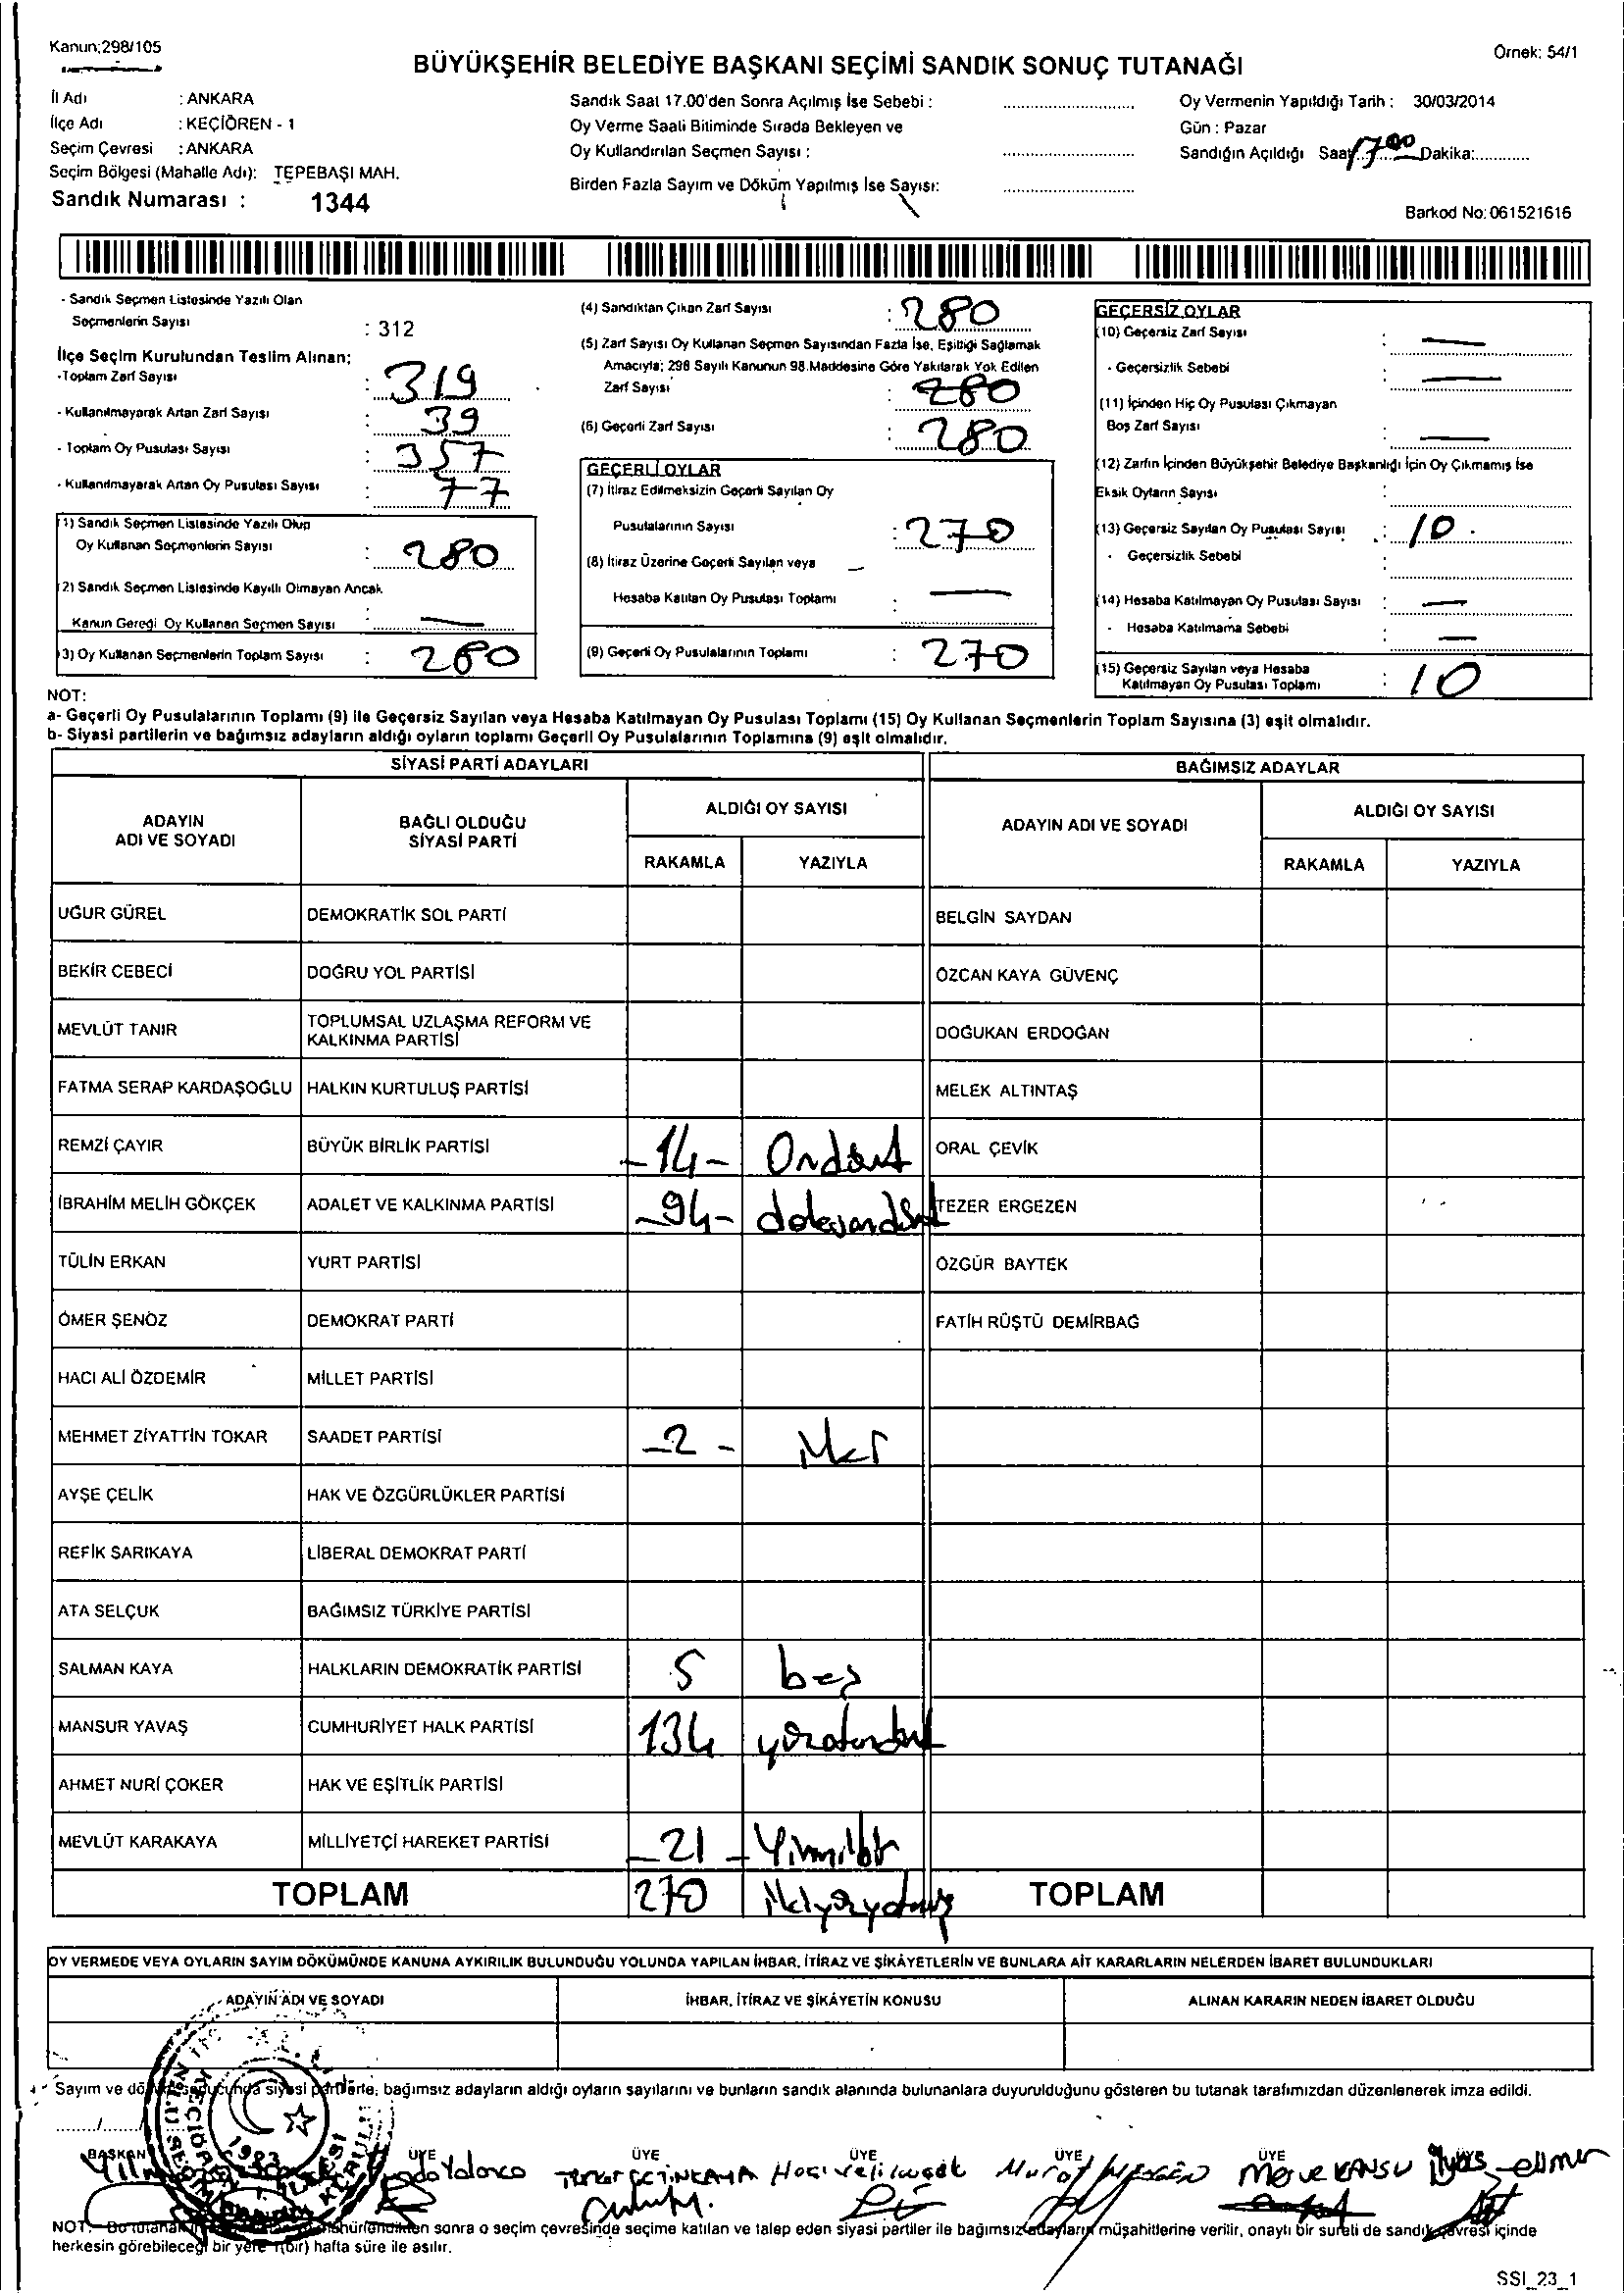 Kanun;298/105
Örnek: 54/1
BÜYÜKŞEHİR BELEDİYE BAŞKANI SEÇİMİ SANDIK SONUÇ TUTANAĞI
İl Adı : ANKARA
İlçe Adı : KEÇİÖREN - 1
Seçim Çevresi : ANKARA
Seçim Bölgesi (Mahalle Adı): TEPEBAŞI MAH.
Sandık Numarası : 1344
Sandık Saat 17.00'den Sonra Açılmış İse Sebebi :
Oy Verme Saati Bitiminde Sırada Bekleyen ve
Oy Kullandırılan Seçmen Sayısı :
Birden Fazla Sayım ve Döküm Yapılmış İse Sayısı:
Oy Vermenin Yapıldığı Tarih : 30/03/2014
Gün : Pazar
Sandığın Açıldığı Saat 17 00 Dakika:
Barkod No: 061521616
- Sandık Seçmen Listesinde Yazılı Olan
Seçmenlerin Sayısı : 312
İlçe Seçim Kurulundan Teslim Alınan;
-Toplam Zarf Sayısı : 319
- Kullanılmayarak Artan Zarf Sayısı : 39
- Toplam Oy Pusulası Sayısı : 357
- Kullanılmayarak Artan Oy Pusulası Sayısı : 77
(1) Sandık Seçmen Listesinde Yazılı Olup
Oy Kullanan Seçmenlerin Sayısı : 280
(2) Sandık Seçmen Listesinde Kayıtlı Olmayan Ancak
Kanun Gereği Oy Kullanan Seçmen Sayısı : —
(3) Oy Kullanan Seçmenlerin Toplam Sayısı : 280
(4) Sandıktan Çıkan Zarf Sayısı : 280
(5) Zarf Sayısı Oy Kullanan Seçmen Sayısından Fazla İse, Eşitliği Sağlamak
Amacıyla; 298 Sayılı Kanunun 98.Maddesine Göre Yakılarak Yok Edilen
Zarf Sayısı : 280
(6) Geçerli Zarf Sayısı : 280
GEÇERLİ OYLAR
(7) İtiraz Edilmeksizin Geçerli Sayılan Oy
Pusulalarının Sayısı : 270
(8) İtiraz Üzerine Geçerli Sayılan veya
Hesaba Katılan Oy Pusulası Toplamı : —
(9) Geçerli Oy Pusulalarının Toplamı : 270
GEÇERSİZ OYLAR
(10) Geçersiz Zarf Sayısı : —
- Geçersizlik Sebebi : —
(11) İçinden Hiç Oy Pusulası Çıkmayan
Boş Zarf Sayısı : —
(12) Zarfın İçinden Büyükşehir Belediye Başkanlığı İçin Oy Çıkmamış İse
Eksik Oyların Sayısı :
(13) Geçersiz Sayılan Oy Pusulası Sayısı : 10
- Geçersizlik Sebebi :
(14) Hesaba Katılmayan Oy Pusulası Sayısı : —
- Hesaba Katılmama Sebebi : —
(15) Geçersiz Sayılan veya Hesaba
Katılmayan Oy Pusulası Toplamı : 10
NOT:
a- Geçerli Oy Pusulalarının Toplamı (9) ile Geçersiz Sayılan veya Hesaba Katılmayan Oy Pusulası Toplamı (15) Oy Kullanan Seçmenlerin Toplam Sayısına (3) eşit olmalıdır.
b- Siyasi partilerin ve bağımsız adayların aldığı oyların toplamı Geçerli Oy Pusulalarının Toplamına (9) eşit olmalıdır.
SİYASİ PARTİ ADAYLARI
BAĞIMSIZ ADAYLAR
ADAYIN ADI VE SOYADI
BAĞLI OLDUĞU SİYASİ PARTİ
ALDIĞI OY SAYISI
RAKAMLA YAZIYLA
ADAYIN ADI VE SOYADI
ALDIĞI OY SAYISI
RAKAMLA YAZIYLA
UĞUR GÜREL DEMOKRATİK SOL PARTİ BELGİN SAYDAN
BEKİR CEBECİ DOĞRU YOL PARTİSİ ÖZCAN KAYA GÜVENÇ
MEVLÜT TANIR TOPLUMSAL UZLAŞMA REFORM VE KALKINMA PARTİSİ DOĞUKAN ERDOĞAN
FATMA SERAP KARDAŞOĞLU HALKIN KURTULUŞ PARTİSİ MELEK ALTINTAŞ
REMZİ ÇAYIR BÜYÜK BİRLİK PARTİSİ -14- Ondört ORAL ÇEVİK
İBRAHİM MELİH GÖKÇEK ADALET VE KALKINMA PARTİSİ -94- doksandört TEZER ERGEZEN
TÜLİN ERKAN YURT PARTİSİ ÖZGÜR BAYTEK
ÖMER ŞENÖZ DEMOKRAT PARTİ FATİH RÜŞTÜ DEMİRBAĞ
HACI ALİ ÖZDEMİR MİLLET PARTİSİ
MEHMET ZİYATTİN TOKAR SAADET PARTİSİ -2- iki
AYŞE ÇELİK HAK VE ÖZGÜRLÜKLER PARTİSİ
REFİK SARIKAYA LİBERAL DEMOKRAT PARTİ
ATA SELÇUK BAĞIMSIZ TÜRKİYE PARTİSİ
SALMAN KAYA HALKLARIN DEMOKRATİK PARTİSİ 5 beş
MANSUR YAVAŞ CUMHURİYET HALK PARTİSİ 134 yüzotuzdört
AHMET NURİ ÇOKER HAK VE EŞİTLİK PARTİSİ
MEVLÜT KARAKAYA MİLLİYETÇİ HAREKET PARTİSİ -21- Yirmibir
TOPLAM 270 ikiyüzyetmiş TOPLAM
OY VERMEDE VEYA OYLARIN SAYIM DÖKÜMÜNDE KANUNA AYKIRILIK BULUNDUĞU YOLUNDA YAPILAN İHBAR, İTİRAZ VE ŞİKÂYETLERİN VE BUNLARA AİT KARARLARIN NELERDEN İBARET BULUNDUKLARI
ADAYIN ADI VE SOYADI İHBAR, İTİRAZ VE ŞİKÂYETİN KONUSU ALINAN KARARIN NEDEN İBARET OLDUĞU
Sayım ve döküm sonucunda siyasi partilerle, bağımsız adayların aldığı oyların sayılarını ve bunların sandık alanında bulunanlara duyurulduğunu gösteren bu tutanak tarafımızdan düzenlenerek imza edildi.
....../....../
BAŞKAN ÜYE ÜYE ÜYE ÜYE ÜYE ÜYE
Yalınca ÇETİNKAYA Hacı Veli Murat Merve KANSU İlyas
1983
NOT: Bu tutanak sonra o seçim çevresinde seçime katılan ve talep eden siyasi partiler ile bağımsız adayların müşahitlerine verilir, onaylı bir sureti de sandık çevresi içinde
herkesin görebileceği bir yere 1(bir) hafta süre ile asılır.
SSI_23_1